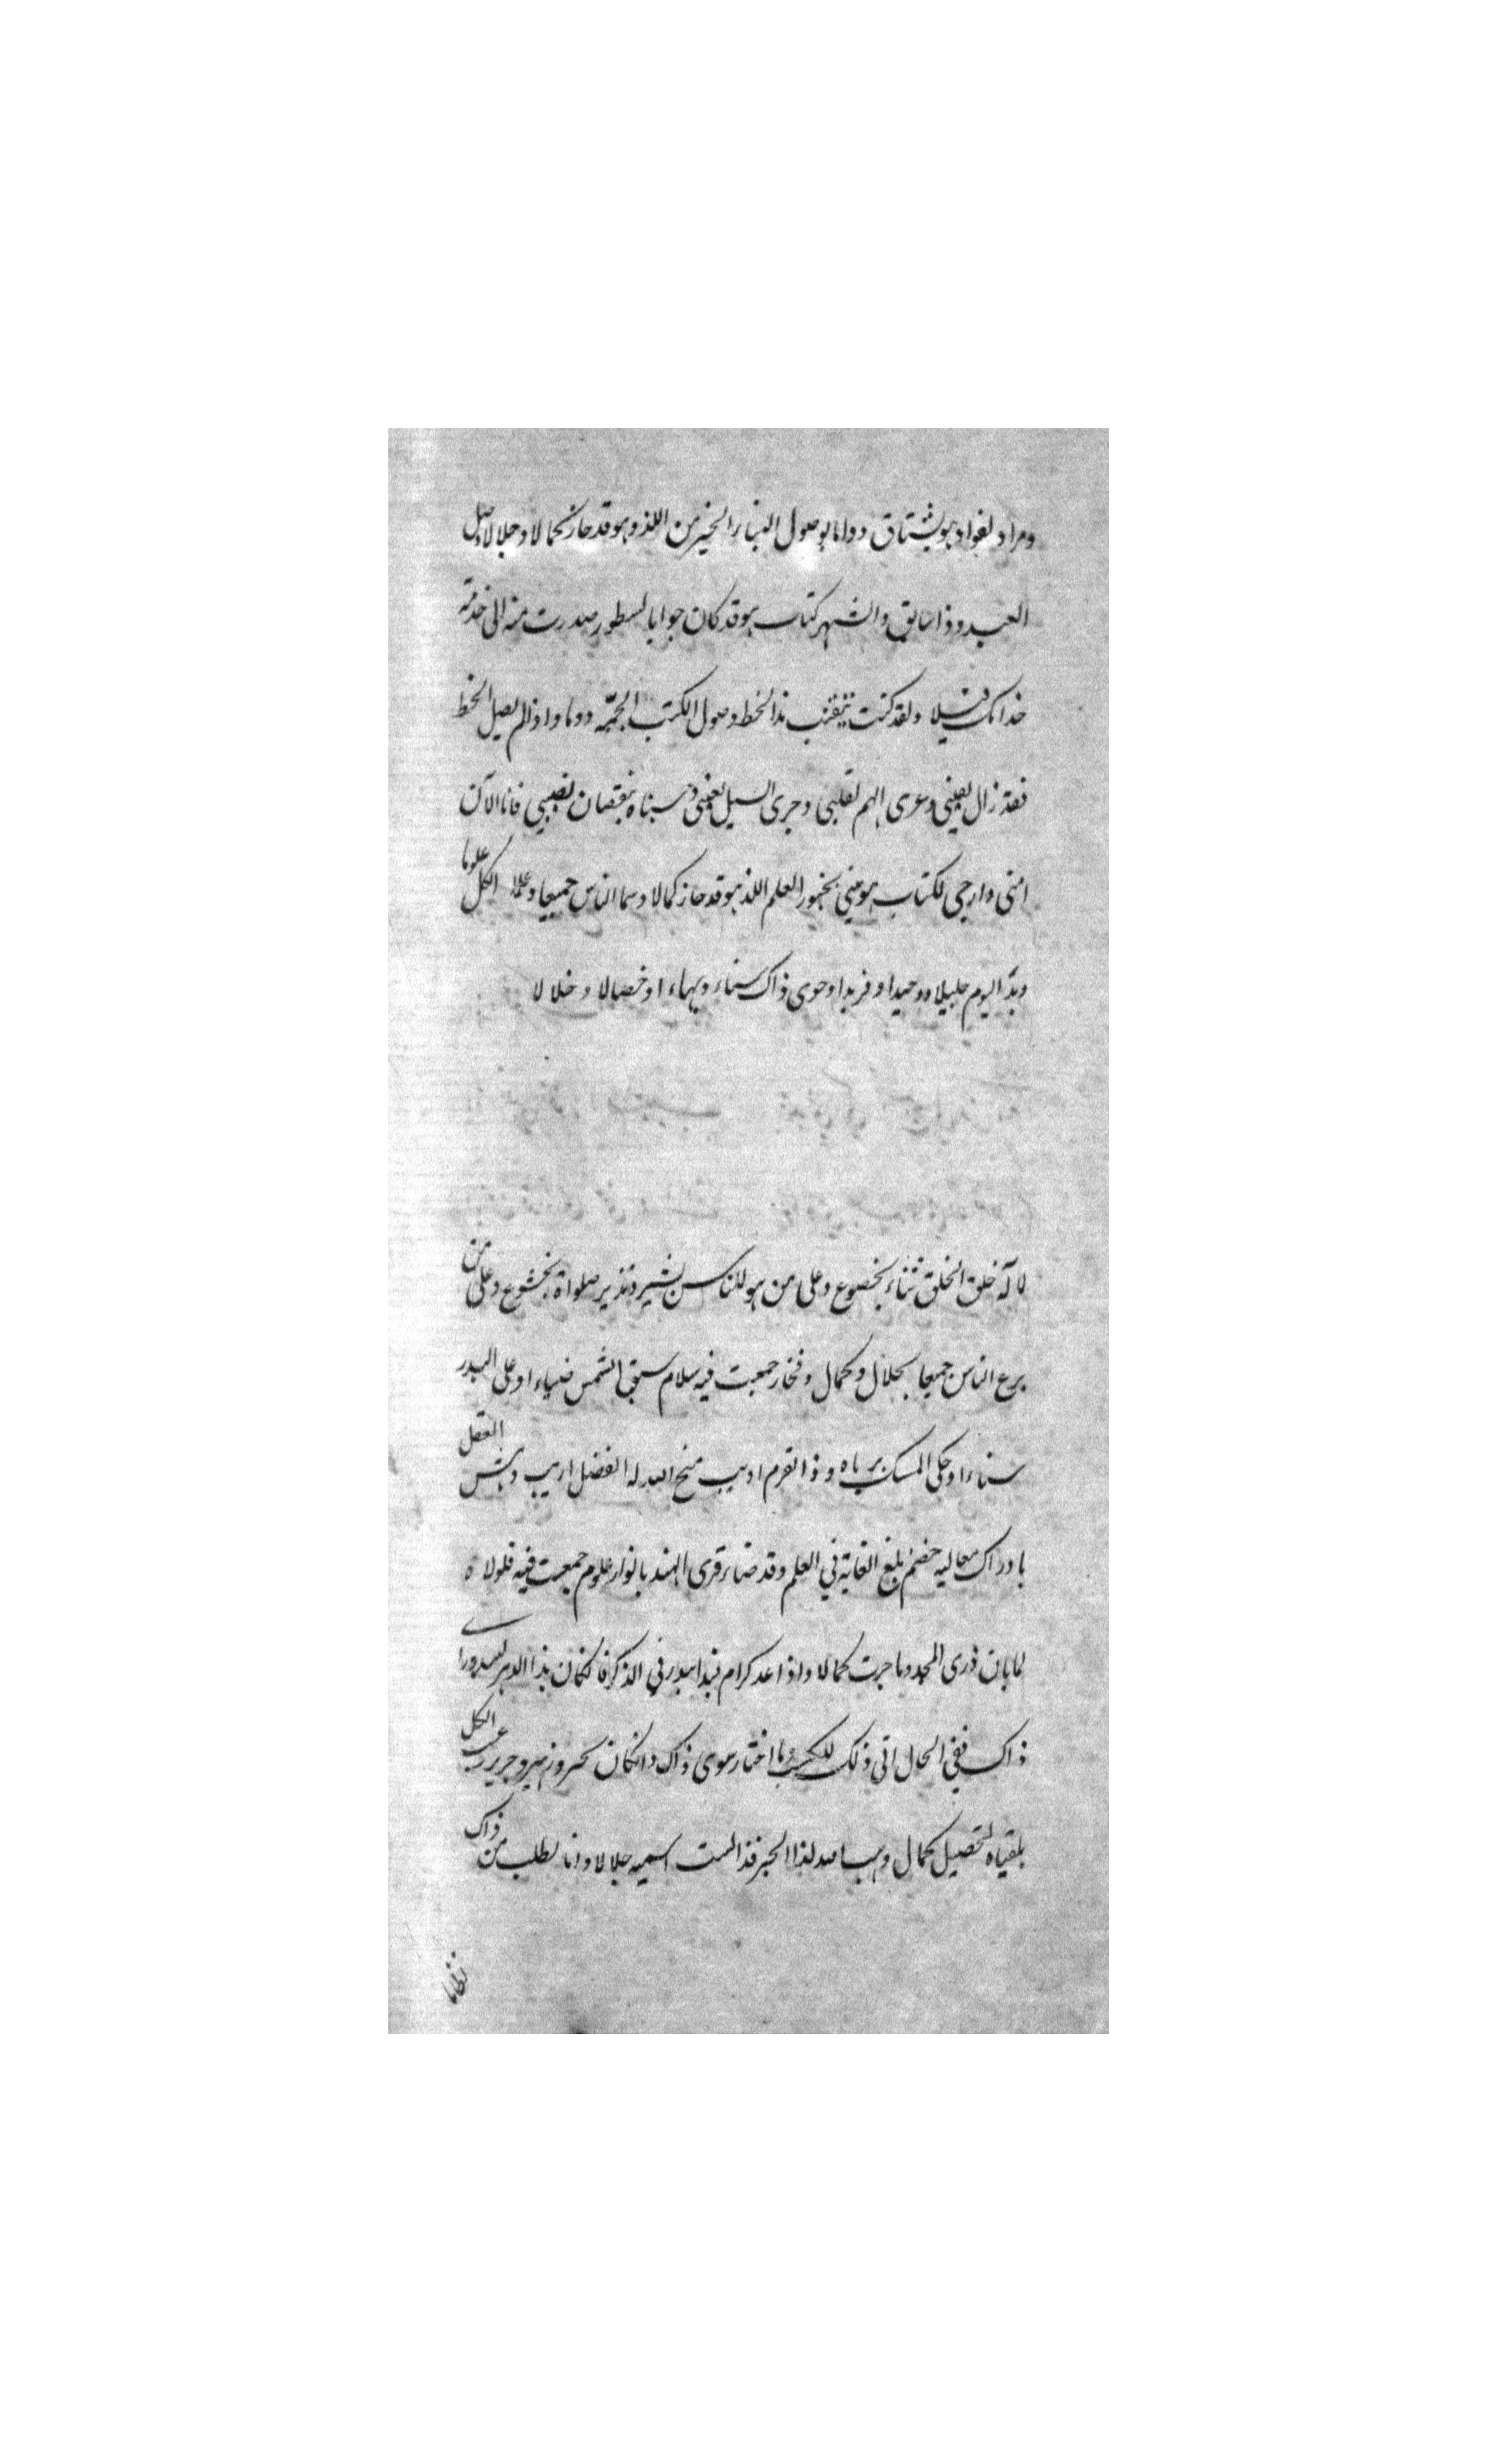 ومراد لفواد هو يشتاق دواما بوصول الخير من اللذ وهو قد حاز كمالا وجلالا وصل
العبد وذا سابق والشهر كتاب هو قد كان جوابا لسطور صدرت منه الى خدمة
خدامك قبلا ولقد كنت هذا الخط وصول الكتب الجمة دوما واذا لم يصل الخط
فقد زال يقيني وعرى الهم لقلبي وجرى السيل لعيني بنقصان نصيبي فانا الآن
امنى وارجى لكتاب هو العلم اللذ هو قد حاز كمالا وسما الناس جميعا وعلا الكل علوما
وبدا اليوم جليلا ووحيدا وفريدا وحوى ذاك سناء وبهاء او خصالا وخلالا
لاله خلق الخلق ثناء بخضوع وعلى من هو للناس بشير ونذير صلواة بخشوع وعلى من
برع الناس جميعا بجلال وكمال وفخار جمعت فيه سلام سبق الشمس ضياء او على البدر
سناء او حكى المسك برياه وذا القرم اديب منح الله له الفضل اريب العقل
بادراك معاليه خضم بلغ الغاية في العلم وقد قرى الهند بانوار علوم جمعت فيه فلولاه
لما بان ذرى المجد وما جرت كمالا واذا عد كرام فبدا بدر في الذكر فا لكان هذا الدهر
ذاك ففي الحال اتى ذلك ما اختار سوى ذاك وانكان الكل
بلقياه لتحصيل كمال وهب الله لذا الحبر فذا لست اسميه جلالا وانا نطلب من ذاك